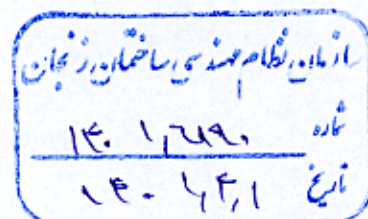 سازمان نظام مهندسی ساختمان زنجان
شماره
تاریخ ۱۴۰۱,۴,۱